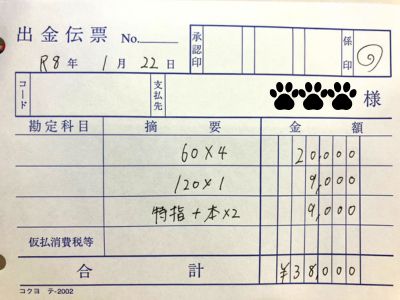 出金伝票 No.
承認印
係印
R8年 1月 22日
コード
支払先
様
勘定科目 摘要 金額
60×4 20,000
120×1 9,000
特指+本×2 9,000
仮払消費税等
合計 ¥38,000
コクヨ テ-2002